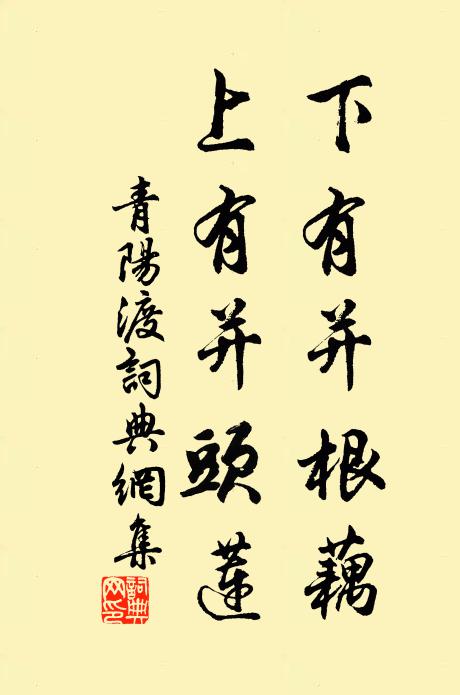 下有并根藕
上有并頭蓮
青陽渡詞典網集
詞典網印